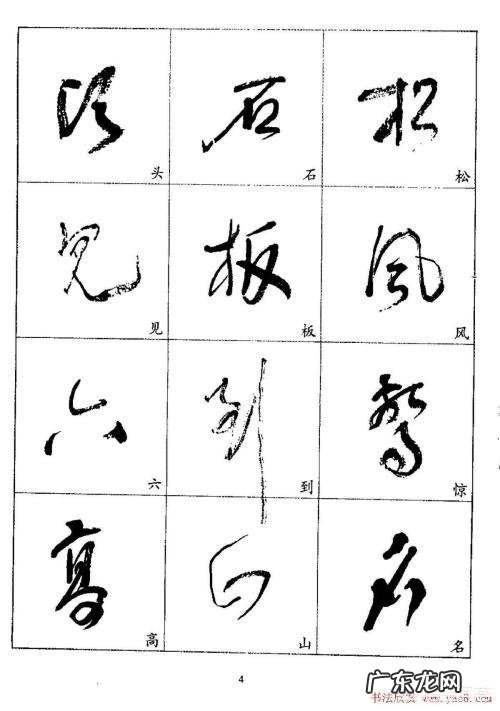 头 石 松
见 板 风
六 到 惊
高 山 名
4
广东龙网
书法欣赏 www.yac8.com